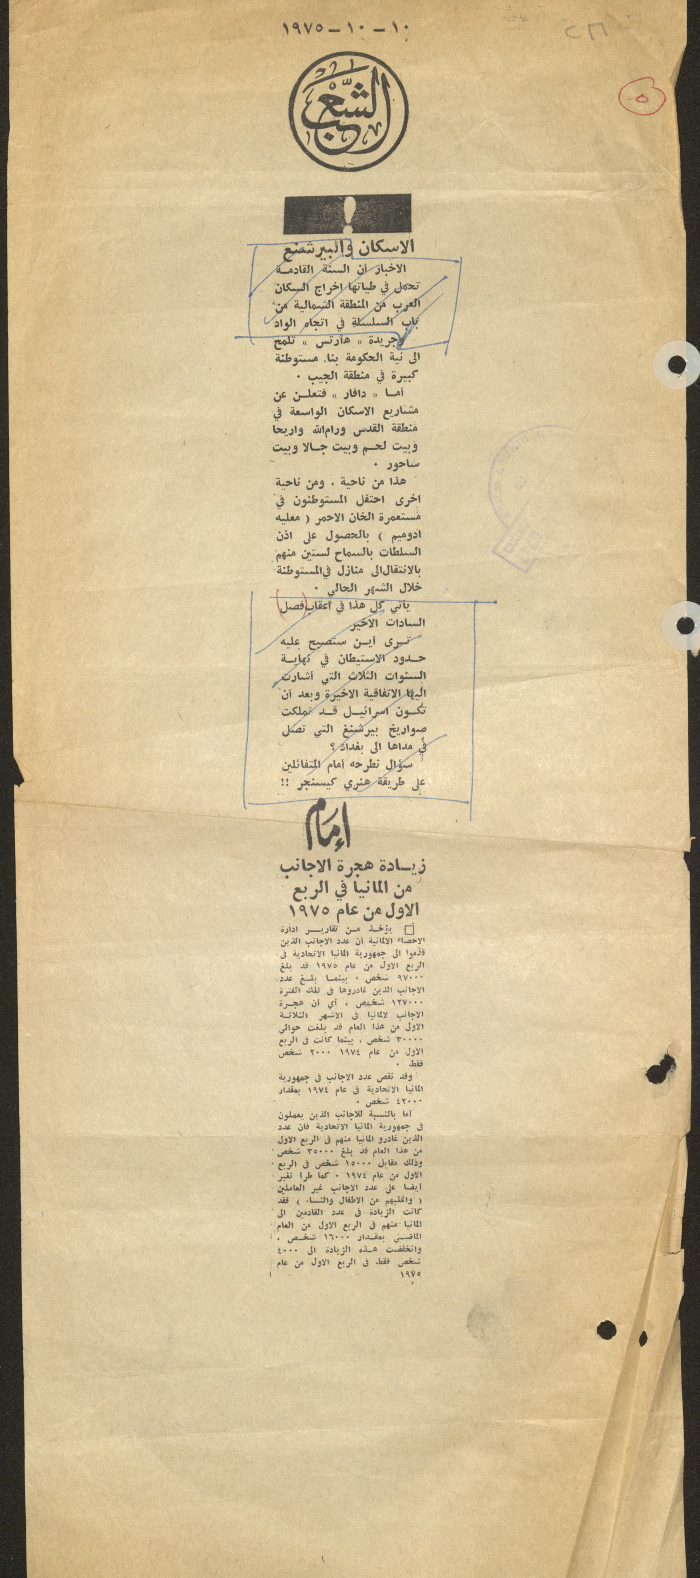 ١٠ - ١٠ - ١٩٧٥
٥
الشعب
!
الاسكان والبيرشنغ
الاخبار أن السنة القادمة
تحمل في طياتها اخراج السكان
العرب من المنطقة الشمالية من
باب السلسلة في اتجاه الواد
وجريدة « هآرتس » تلمح
الى نية الحكومة بناء مستوطنة
كبيرة في منطقة الجيب ٠
أما « دافار » فتعلن عن
مشاريع الاسكان الواسعة في
منطقة القدس ورام الله واريحا
وبيت لحم وبيت جالا وبيت
ساحور ٠
هذا من ناحية ، ومن ناحية
اخرى احتفل المستوطنون في
مستعمرة الخان الاحمر ( معليه
ادوميم ) بالحصول على اذن
السلطات بالسماح لستين منهم
بالانتقال الى منازل في المستوطنة
خلال الشهر الحالي ٠
يأتي كل هذا في اعقاب فصل
السادات الاخير
ترى أين ستصبح عليه
حدود الاستيطان في نهاية
السنوات الثلاث التي أشارت
اليها الاتفاقية الاخيرة وبعد أن
تكون اسرائيل قد تملكت
صواريخ بيرشنغ التي تصل
في مداها الى بغداد ؟
سؤال نطرحه أمام المتفائلين
على طريقة هنري كيسنجر !!
إمام
زيادة هجرة الاجانب
من المانيا في الربع
الاول من عام ١٩٧٥
□ يؤخذ من تقارير ادارة
الاحصاء الالمانية أن عدد الاجانب الذين
قدموا الى جمهورية المانيا الاتحادية في
الربع الاول من عام ١٩٧٥ قد بلغ
٩٧٠٠٠ شخص ، بينما بلغ عدد
الاجانب الذين غادروها في تلك الفترة
١٢٧٠٠٠ شخص ، أي أن هجرة
الاجانب لالمانيا في الاشهر الثلاثة
الاولى من هذا العام قد بلغت حوالي
٣٠٠٠٠ شخص ، بينما كانت في الربع
الاول من عام ١٩٧٤ ٢٠٠٠ شخص
فقط ٠
وقد نقص عدد الاجانب في جمهورية
المانيا الاتحادية في عام ١٩٧٤ بمقدار
٤٢٠٠٠ شخص ٠
أما بالنسبة للاجانب الذين يعملون
في جمهورية المانيا الاتحادية فان عدد
الذين غادرو المانيا منهم في الربع الاول
من هذا العام قد بلغ ٣٥٠٠٠ شخص
وذلك مقابل ١٥٠٠٠ شخص في الربع
الاول من عام ١٩٧٤ ٠ كما طرأ تغير
أيضا على عدد الاجانب غير العاملين
( واغلبهم من الاطفال والنساء ) فقد
كانت الزيادة في عدد القادمين الى
المانيا منهم في الربع الاول من العام
الماضي بمقدار ١٦٠٠٠ شخص ،
وانخفضت هذه الزيادة الى ٤٠٠٠
شخص فقط في الربع الاول من عام
١٩٧٥